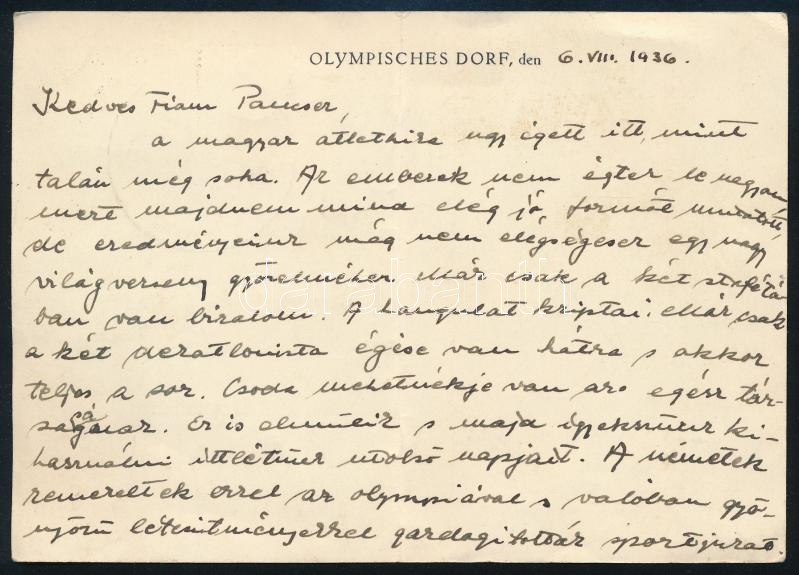 OLYMPISCHES DORF, den 6. VIII. 1936.
Kedves Fiam
a magyar atlétika ugy égett itt, mint
talán még soha. Az emberek nem égtek le nagyon
mert majdnem mind elég jó formát mutatott,
de eredményeink még nem elégségesek egy nagy
világverseny győzelméhez. Már csak a két stafétá-
ban van bizalom. A hangulat kriptai. Már csak
a két decatlonista égése van hátra s akkor
teljes a sor. Csoda mehetnékje van az egész tár-
saságnak. Ez is elmúlik s majd igyekszünk ki-
használni ittlétünk utolsó napjait. A németek
remekeltek ezzel az olympiával s valóban gyö-
nyörü létesitményekkel gazdagitották sportjukat.
darabanth